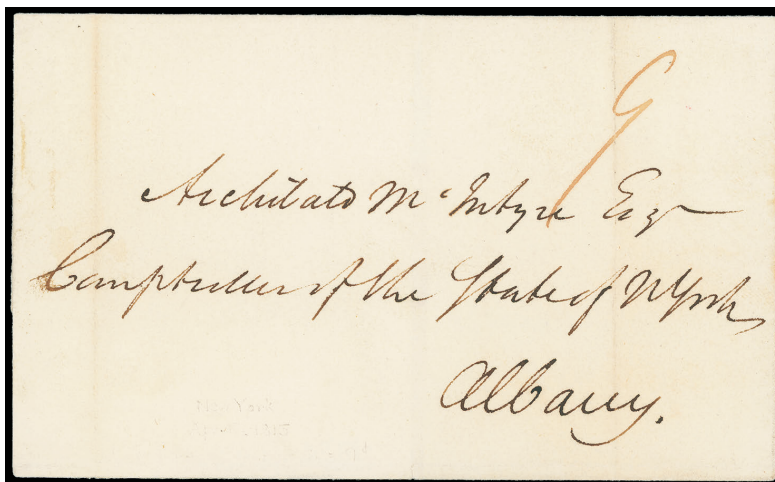 9
Archibald McIntyre Esqr
Comptroller of the State of N York
Albany.